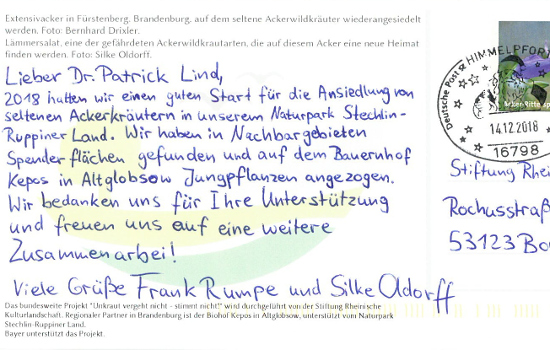 Extensivacker in Fürstenberg, Brandenburg, auf dem seltene Ackerwildkräuter wiederangesiedelt
werden. Foto: Bernhard Drixler.
Lämmersalat, eine der gefährdeten Ackerwildkrautarten, die auf diesem Acker eine neue Heimat
finden werden. Foto: Silke Oldorff.
Lieber Dr. Patrick Lind,
2018 hatten wir einen guten Start für die Ansiedlung von
seltenen Ackerkräutern in unserem Naturpark Stechlin-
Ruppiner Land. Wir haben in Nachbargebieten
Spenderflächen gefunden und auf dem Bauernhof
Kepos in Altglobsow Jungpflanzen angezogen.
Wir bedanken uns für Ihre Unterstützung
und freuen uns auf eine weitere
Zusammenarbei!
Viele Grüße Frank Rumpe und Silke Oldorff
Das bundesweite Projekt "Unkraut vergeht nicht - stimmt nicht!" wird durchgeführt von der Stiftung Rheinische
Kulturlandschaft. Regionaler Partner in Brandenburg ist der Biohof Kepos in Altglobsow, unterstützt vom Naturpark
Stechlin-Ruppiner Land.
Bayer unterstützt das Projekt.
HIMMELPFORT
Deutsche Post
14.12.2018
16798
Stiftung Rhei
Rochusstraß
53123 Bo